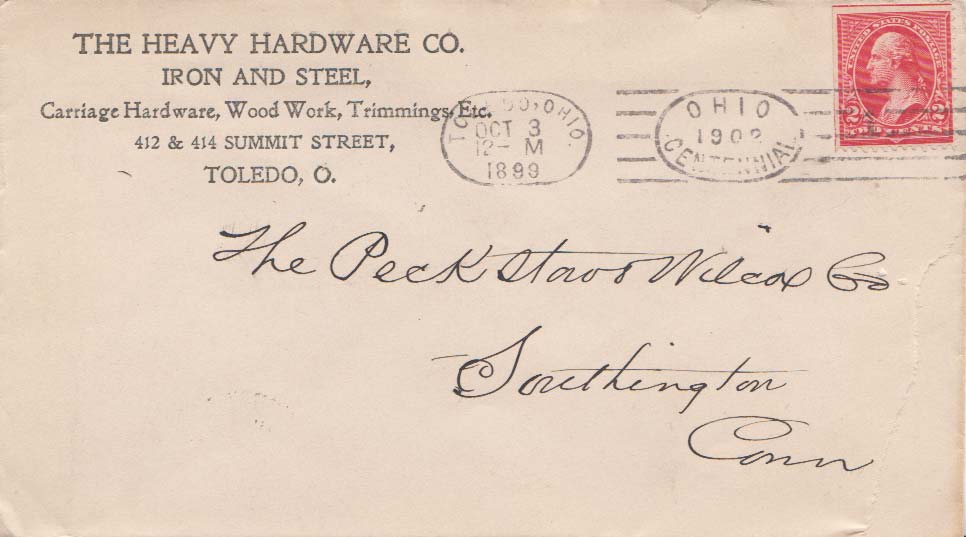 THE HEAVY HARDWARE CO.
IRON AND STEEL,
Carriage Hardware, Wood Work, Trimmings, Etc.
412 & 414 SUMMIT STREET,
TOLEDO, O.
TOLEDO, OHIO.
OCT 3
12- M
1899
OHIO
1902
CENTENNIAL
UNITED STATES POSTAGE
2 TWO CENTS 2
The Peck Stow & Wilcox Co
Southington
Conn